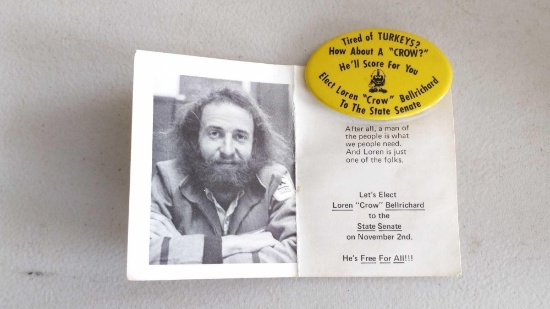 Tired of TURKEYS?
How About A "CROW?"
He'll Score For You
Elect Loren "Crow" Bellrichard
To The State Senate
After all, a man of
the people is what
we people need.
And Loren is just
one of the folks.
Let's Elect
Loren "Crow" Bellrichard
to the
State Senate
on November 2nd.
He's Free For All!!!